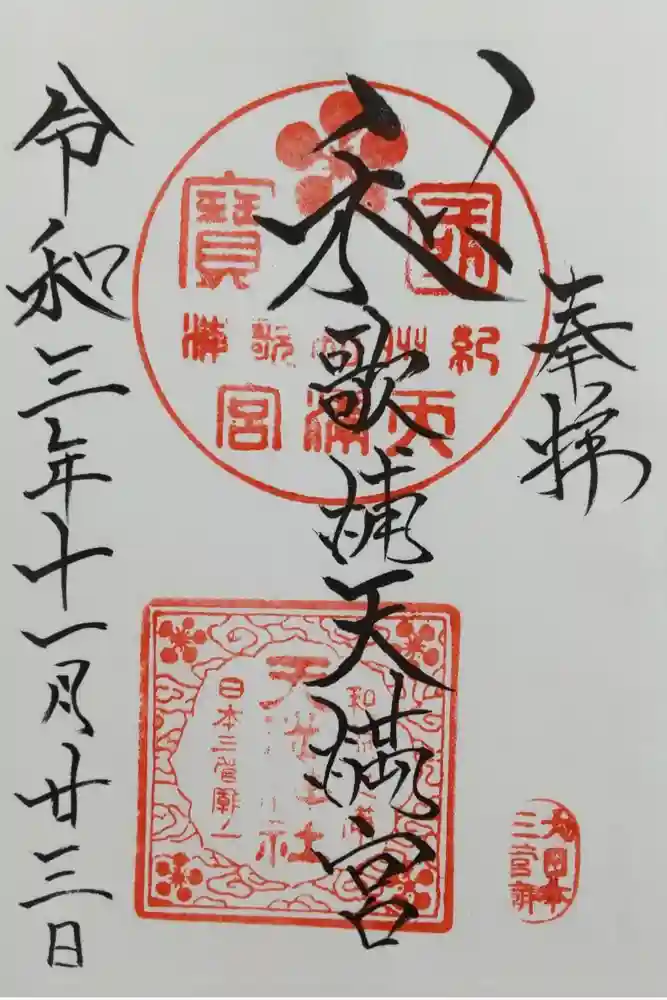 奉拝
和歌浦天満宮
令和三年十一月廿三日
國寳
紀州和歌浦
天満宮
天満宮社
日本三菅廟ノ一
日本
三菅廟